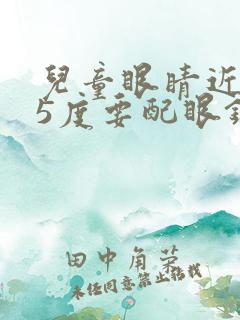 兒童眼睛近
5度要配眼
田中角荣
未经同意禁止转载